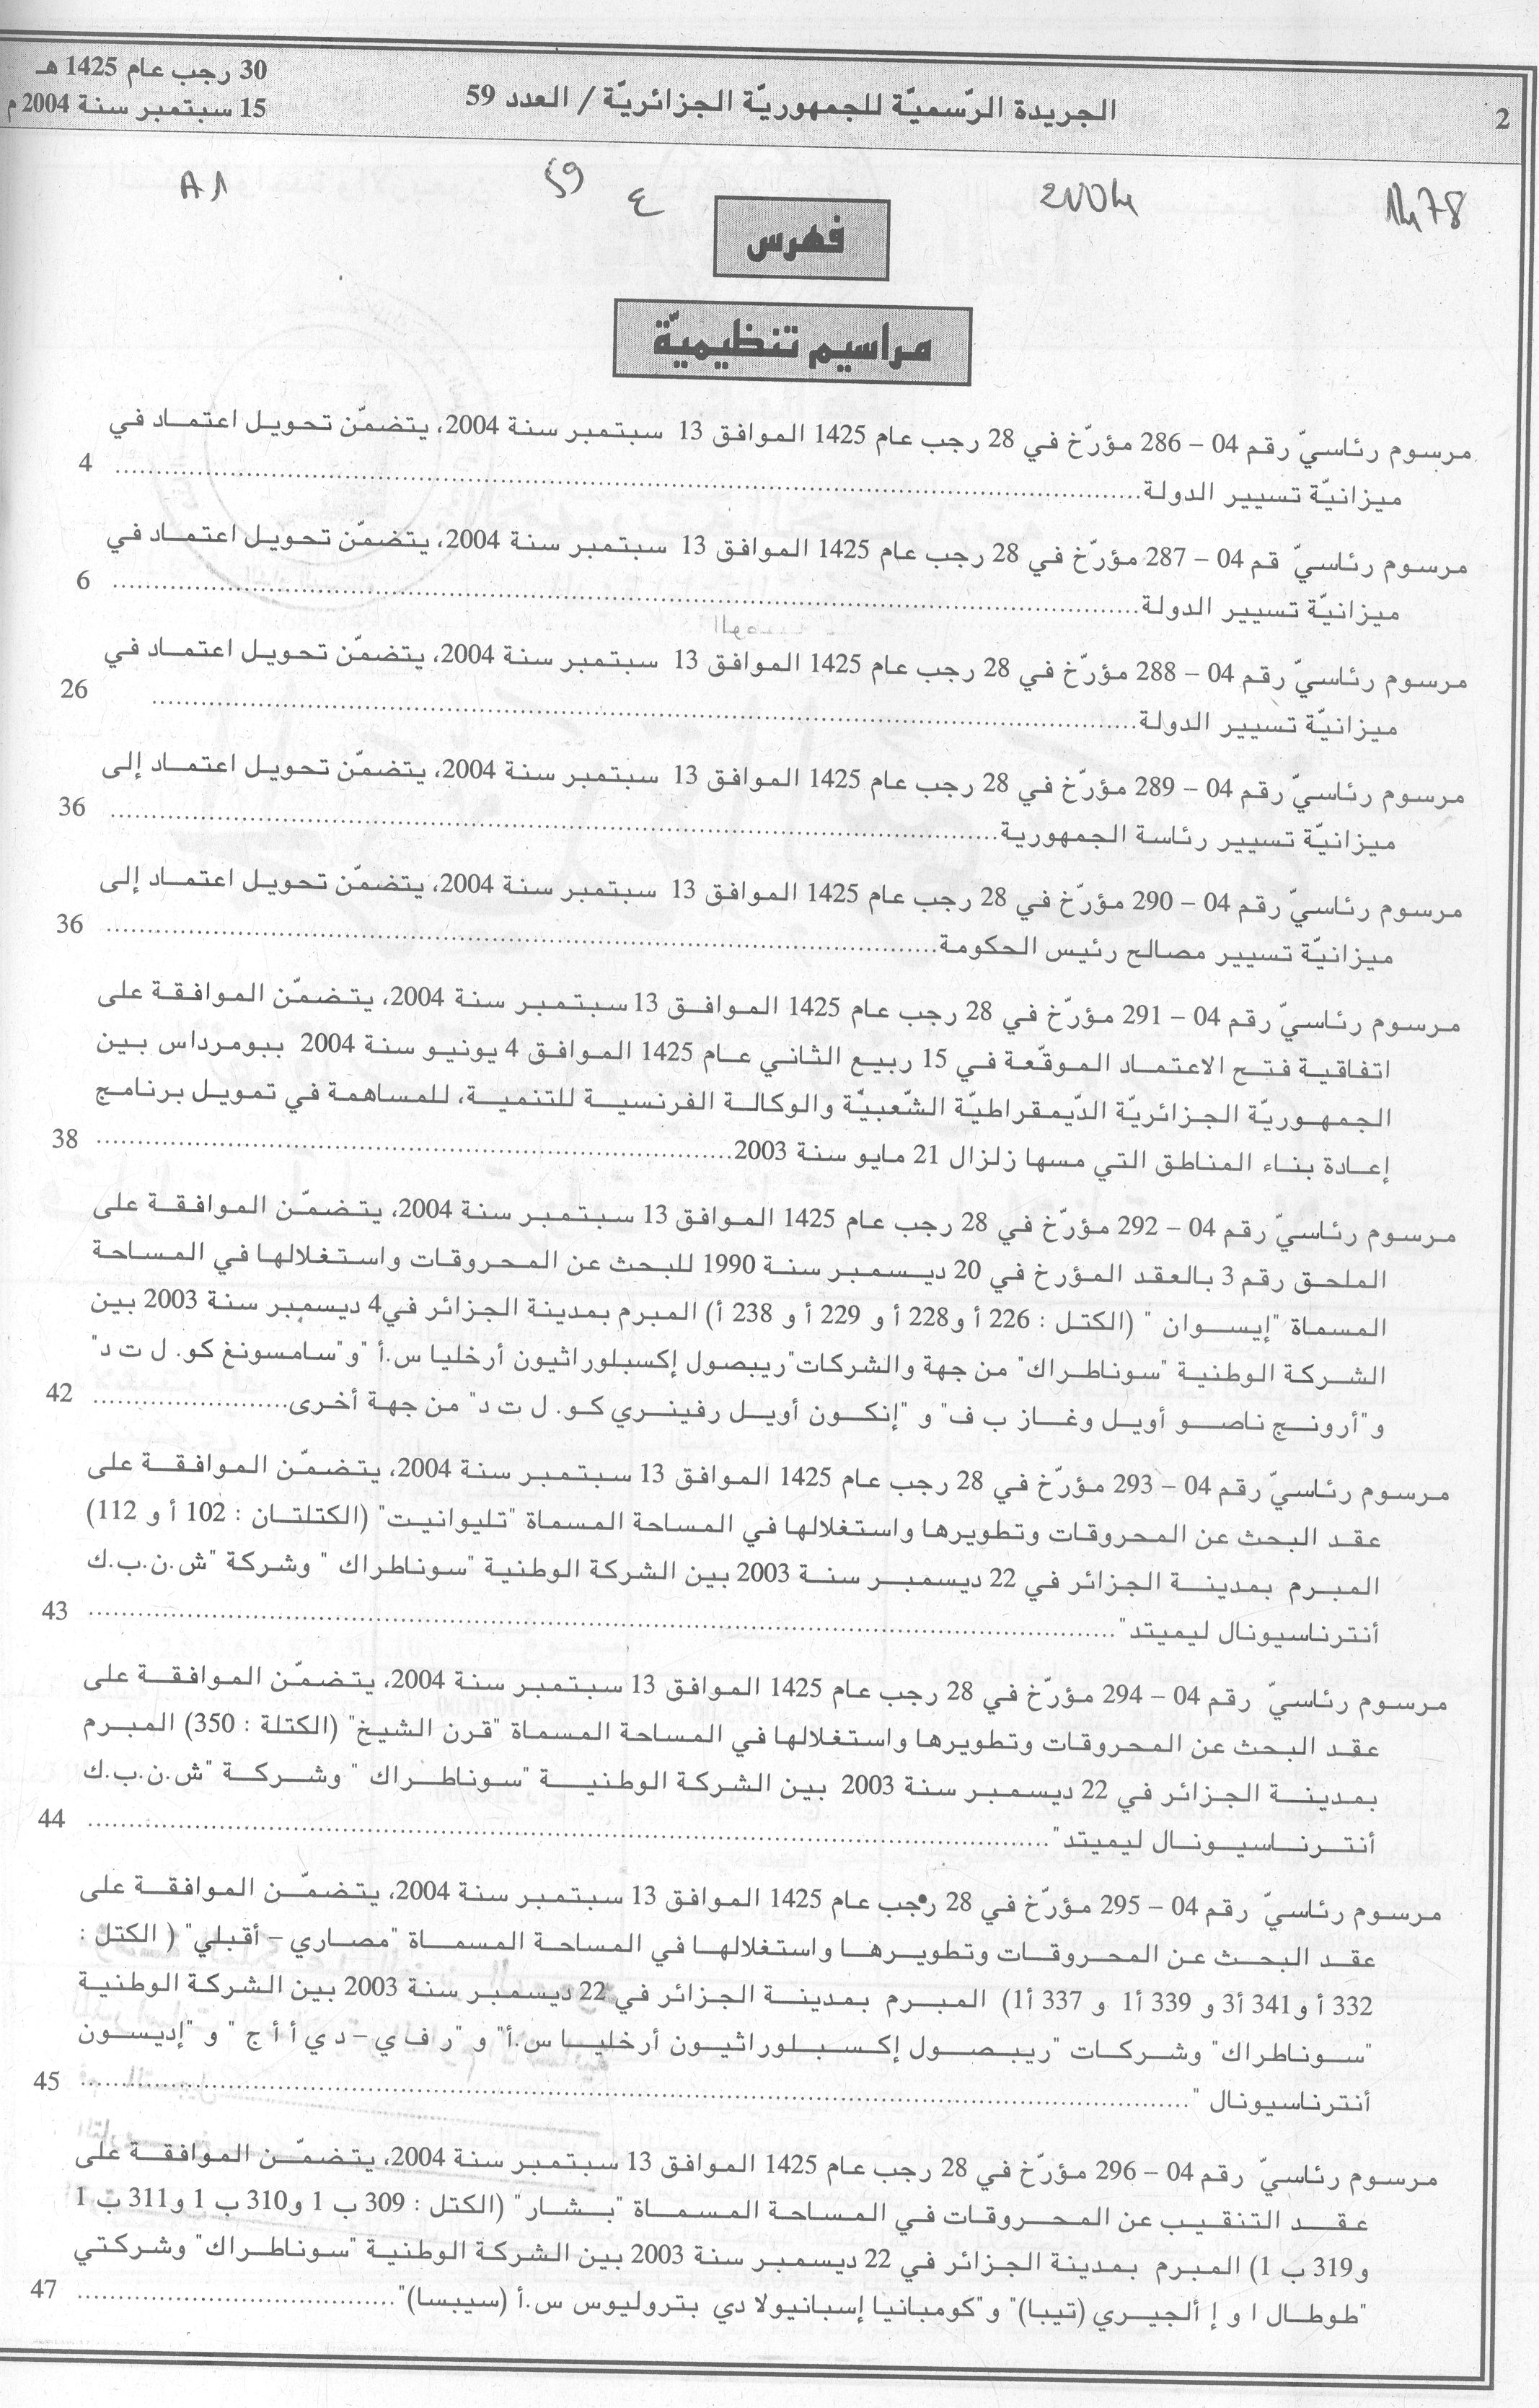 2
الجريدة الرّسميّة للجمهوريّة الجزائريّة / العدد 59
30 رجب عام 1425 هـ
15 سبتمبر سنة 2004 م
1478
2004
ع
59
A1
فهرس
مراسيم تنظيميّة
مرسوم رئاسيّ رقم 04 – 286 مؤرّخ في 28 رجب عام 1425 الموافق 13 سبتمبر سنة 2004، يتضمّن تحويل اعتماد في
ميزانيّة تسيير الدولة........................................ 4
مرسوم رئاسيّ قم 04 – 287 مؤرّخ في 28 رجب عام 1425 الموافق 13 سبتمبر سنة 2004، يتضمّن تحويل اعتماد في
ميزانيّة تسيير الدولة........................................ 6
مرسوم رئاسيّ رقم 04 – 288 مؤرّخ في 28 رجب عام 1425 الموافق 13 سبتمبر سنة 2004، يتضمّن تحويل اعتماد في
ميزانيّة تسيير الدولة........................................ 26
مرسوم رئاسيّ رقم 04 – 289 مؤرّخ في 28 رجب عام 1425 الموافق 13 سبتمبر سنة 2004، يتضمّن تحويل اعتماد إلى
ميزانيّة تسيير رئاسة الجمهورية........................................ 36
مرسوم رئاسيّ رقم 04 – 290 مؤرّخ في 28 رجب عام 1425 الموافق 13 سبتمبر سنة 2004، يتضمّن تحويل اعتماد إلى
ميزانيّة تسيير مصالح رئيس الحكومة........................................ 36
مرسوم رئاسيّ رقم 04 – 291 مؤرّخ في 28 رجب عام 1425 الموافق 13 سبتمبر سنة 2004، يتضمّن الموافقة على
اتفاقية فتح الاعتماد الموقّعة في 15 ربيع الثاني عام 1425 الموافق 4 يونيو سنة 2004 ببومرداس بين
الجمهوريّة الجزائريّة الدّيمقراطيّة الشّعبيّة والوكالة الفرنسية للتنمية، للمساهمة في تمويل برنامج
إعادة بناء المناطق التي مسها زلزال 21 مايو سنة 2003........................................ 38
مرسوم رئاسيّ رقم 04 – 292 مؤرّخ في 28 رجب عام 1425 الموافق 13 سبتمبر سنة 2004، يتضمّن الموافقة على
الملحق رقم 3 بالعقد المؤرخ في 20 ديسمبر سنة 1990 للبحث عن المحروقات واستغلالها في المساحة
المسماة "إيسوان " (الكتل : 226 أ و228 أ و 229 أ و 238 أ) المبرم بمدينة الجزائر في4 ديسمبر سنة 2003 بين
الشركة الوطنية "سوناطراك" من جهة والشركات"ريبصول إكسبلوراثيون أرخليا س.أ "و"سامسونغ كو. ل ت د"
و"أرونج ناصو أويل وغاز ب ف" و "إنكون أويل رفينري كو. ل ت د" من جهة أخرى........................ 42
مرسوم رئاسيّ رقم 04 – 293 مؤرّخ في 28 رجب عام 1425 الموافق 13 سبتمبر سنة 2004، يتضمّن الموافقة على
عقد البحث عن المحروقات وتطويرها واستغلالها في المساحة المسماة "تليوانيت" (الكتلتان : 102 أ و 112)
المبرم بمدينة الجزائر في 22 ديسمبر سنة 2003 بين الشركة الوطنية "سوناطراك " وشركة "ش.ن.ب.ك
أنترناسيونال ليميتد"........................................ 43
مرسوم رئاسيّ رقم 04 – 294 مؤرّخ في 28 رجب عام 1425 الموافق 13 سبتمبر سنة 2004، يتضمّن الموافقة على
عقد البحث عن المحروقات وتطويرها واستغلالها في المساحة المسماة "قرن الشيخ" (الكتلة : 350) المبرم
بمدينة الجزائر في 22 ديسمبر سنة 2003 بين الشركة الوطنية "سوناطراك " وشركة "ش.ن.ب.ك
أنترناسيونال ليميتد"........................................ 44
مرسوم رئاسيّ رقم 04 – 295 مؤرّخ في 28 رجب عام 1425 الموافق 13 سبتمبر سنة 2004، يتضمّن الموافقة على
عقد البحث عن المحروقات وتطويرها واستغلالها في المساحة المسماة "مصاري – أقبلي" ( الكتل :
332 أ و341 أ3 و 339 أ1 و 337 أ1) المبرم بمدينة الجزائر في 22 ديسمبر سنة 2003 بين الشركة الوطنية
"سوناطراك" وشركات "ريبصول إكسبلوراثيون أرخليا س.أ" و "ر ف ي – د ي أ أ ج " و "إديسون
أنترناسيونال "........................................ 45
مرسوم رئاسيّ رقم 04 – 296 مؤرّخ في 28 رجب عام 1425 الموافق 13 سبتمبر سنة 2004، يتضمّن الموافقة على
عقد التنقيب عن المحروقات في المساحة المسماة "بشار" (الكتل : 309 ب 1 و310 ب 1 و311 ب 1
و319 ب 1) المبرم بمدينة الجزائر في 22 ديسمبر سنة 2003 بين الشركة الوطنية "سوناطراك" وشركتي
"طوطال ا و إ ألجيري (تيبا)" و"كومبانيا إسبانيولا دي بتروليوس س.أ (سيبسا)"........................................ 47